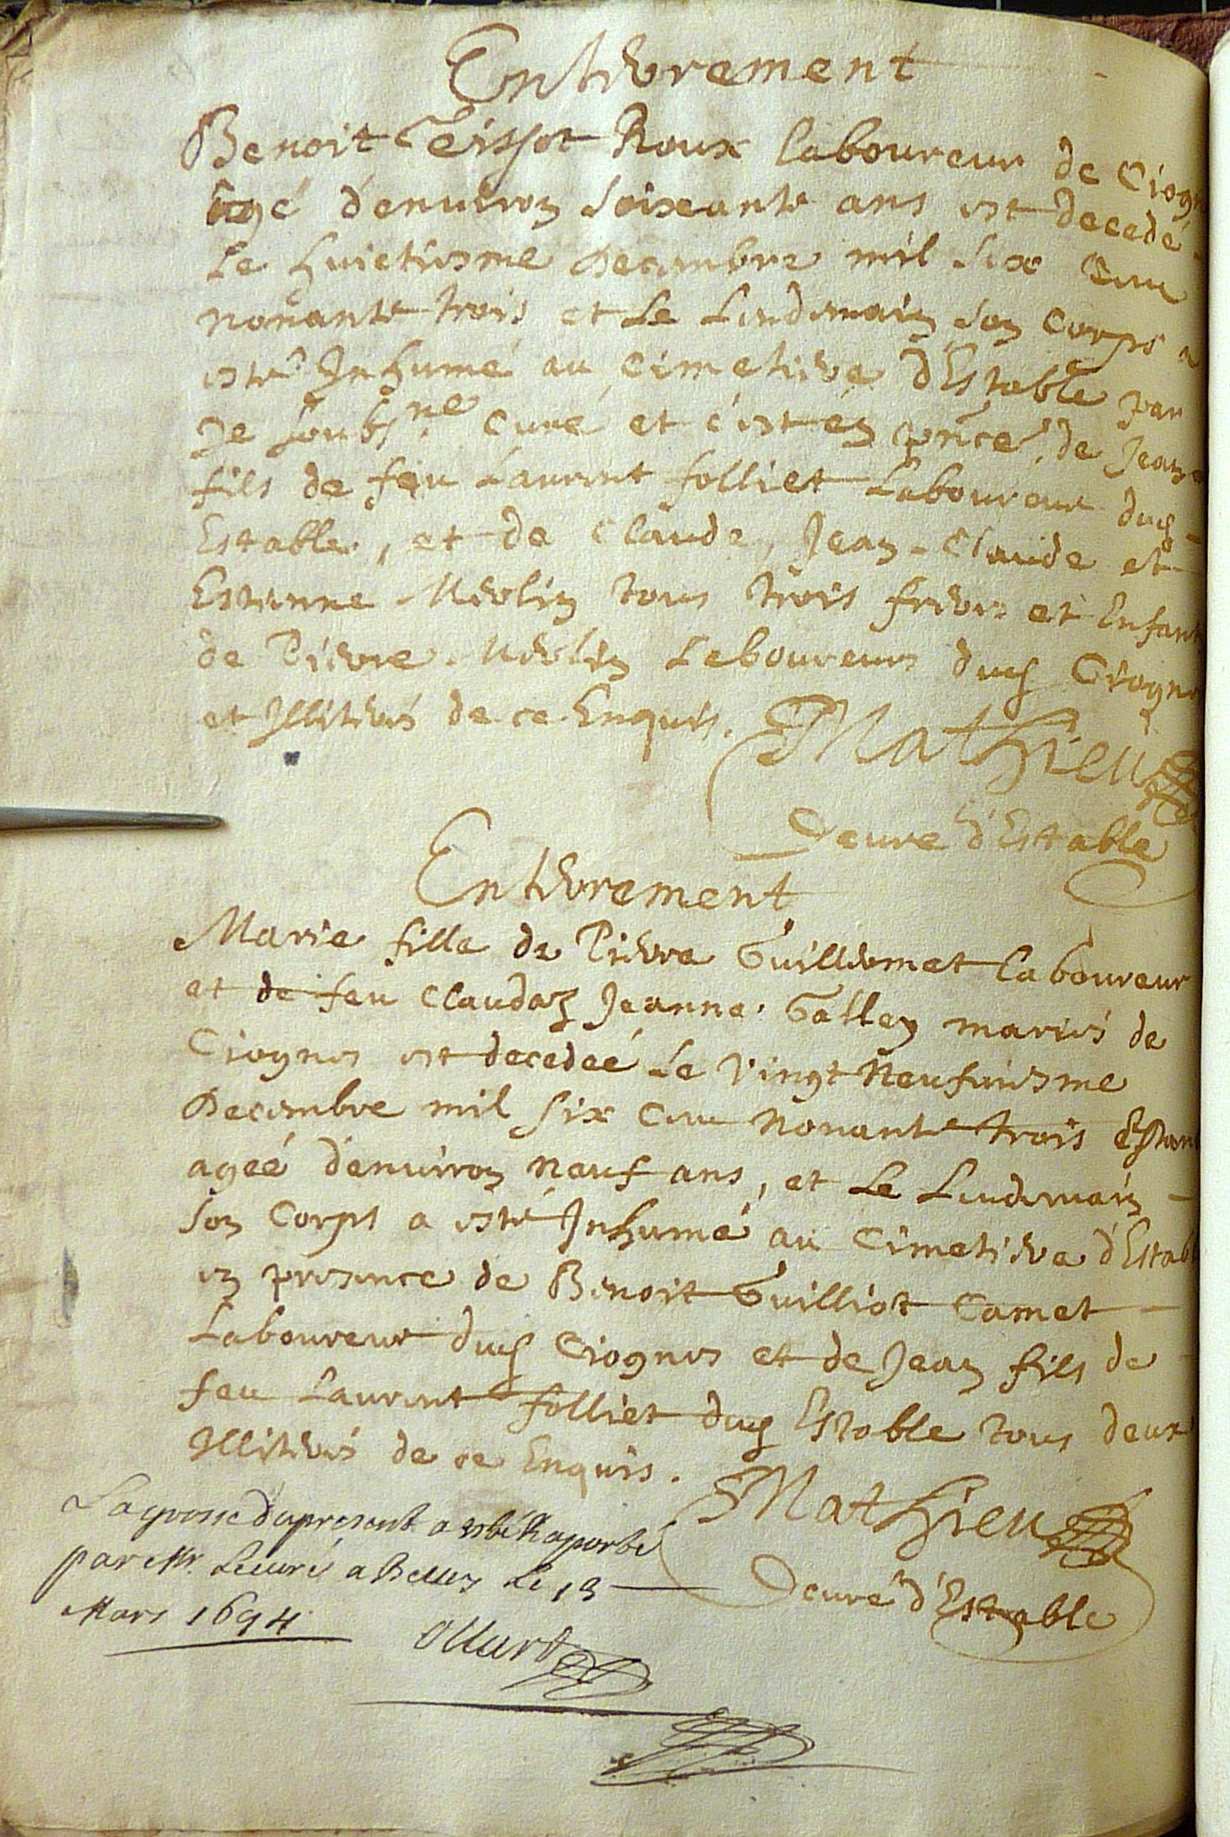 Enterrement
Benoit Teissot Roux laboureur de Ciogn
agé d'environ soixante ans est decedé
Le huictiesme Decembre mil six Cent
nonante trois et Le Lendemain son Corps a
esté Inhumé au Cimetiere d'Estable par
Je soubs.ne Curé et c'est en pñce de Jean
fils de feu Laurent folliet Laboureur dud
Estable, et de Claude, Jean-Claude et
Estienne Merlin tous trois freres et Enfan
de Pierre Merlin Leboureurs dud Ciogne
et Illiterés de ce Enquis. Mathieu
Dcuré d'Estable
Enterrement
Marie fille de Pierre Guillermet laboureur
et de feu Claudaz Jeanne Galley mariés de
Ciognes est decedeé Le vingt Neufuiesme
Decembre mil six Cent Nonante trois Estan
ageé d'environ neuf ans, et Le Lendemain
son Corps a esté Inhumé au Cimetiere d'Estab
en presence de Benoit Guilliot Camet
Laboureur dud Ciognes et de Jean fils de
feu Laurent folliet dud Estable tous deux
Illiterés de ce Enquis. Mathieu
Dcuré d'Estable
La grosse du present a esté Raporté
par Mr. Le curé a Belley Le 13
Mars 1694